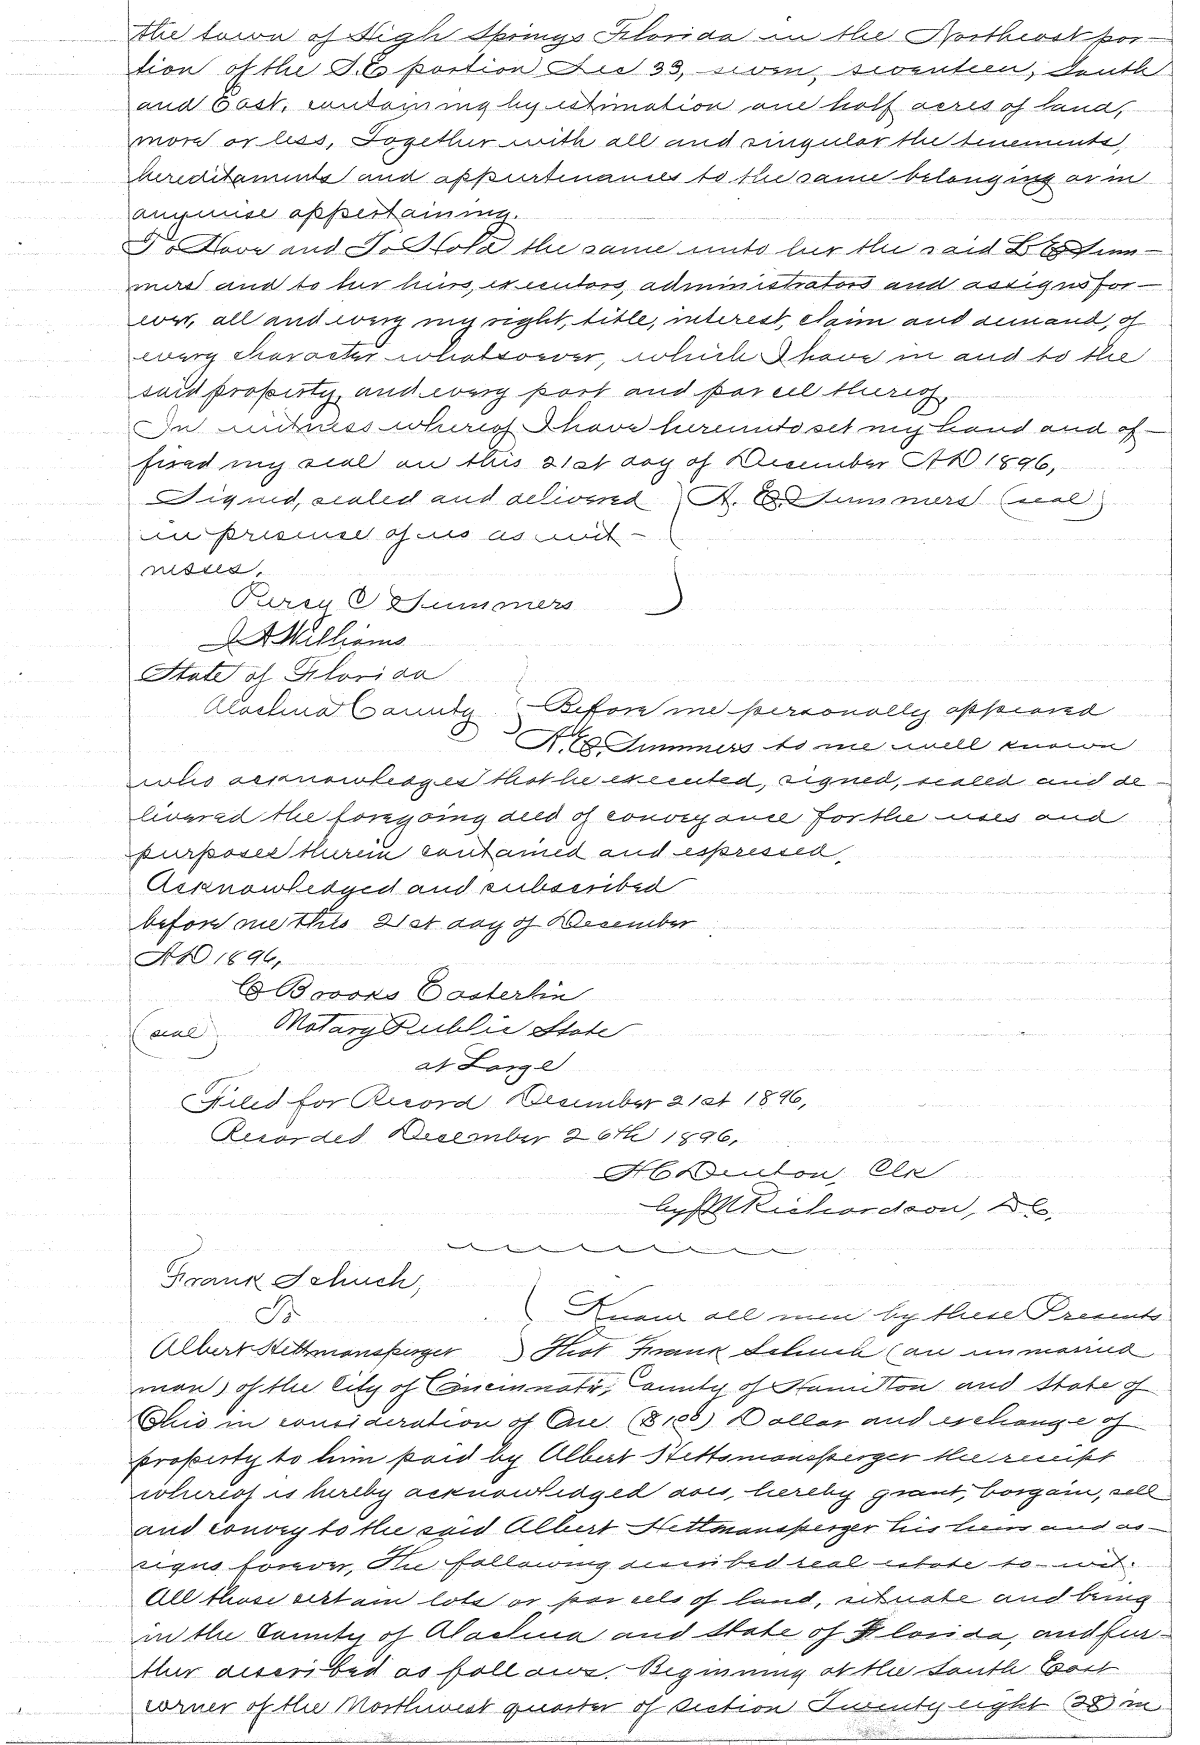 the town of High Springs Florida in the Northeast por-
tion of the S.E portion Sec 33, seven, seventeen, South
and East, containing by estimation one half acres of land,
more or less, Together with all and singular the tenements,
hereditaments and appurtenances to the same belonging or in
anywise appertaining.
To Have and To Hold the same unto her the said L E Sum-
mers and to her heirs, executors, administrators and assigns for-
ever, all and every my right, title, interest, claim and demand, of
every character whatsoever, which I have in and to the
said property, and every part and parcel thereof,
In witness whereof I have hereunto set my hand and af-
fixed my seal on this 21st day of December AD 1896,
Signed, sealed and delivered ) A. E. Summers (seal)
in presence of us as wit-
nesses,
Percy C Summers
J A Williams
State of Florida
Alachua County Before me personally appeared
A. E. Summers to me well known
who acknowledges that he executed, signed, sealed and de-
livered the foregoing deed of conveyance for the uses and
purposes therein contained and expressed,
Acknowledged and subscribed
before me this 21st day of December
AD 1896,
C Brooks Easterlin
(seal) Notary Public State
at Large
Filed for Record December 21st 1896,
Recorded December 26th 1896,
H C Denton, Clk
by J M Richardson, D C,
Frank Schuch,
To
Know all men by these Presents
Albert Hettmansperger ) That Frank Schuch (an unmarried
man) of the City of Cincinnati, County of Hamilton and State of
Ohio in consideration of One ($1.00) Dollar and exchange of
property to him paid by Albert Hettsmansperger the receipt
whereof is hereby acknowledged does, hereby grant, bargain, sell
and convey to the said Albert Hettmansperger his heirs and as-
signs forever, The following described real estate to-wit.
All those certain lots or parcels of land, situate and being
in the County of Alachua and State of Florida, and fur-
ther described as follows. Beginning at the South East
corner of the Northwest quarter of section Twenty eight (28) in